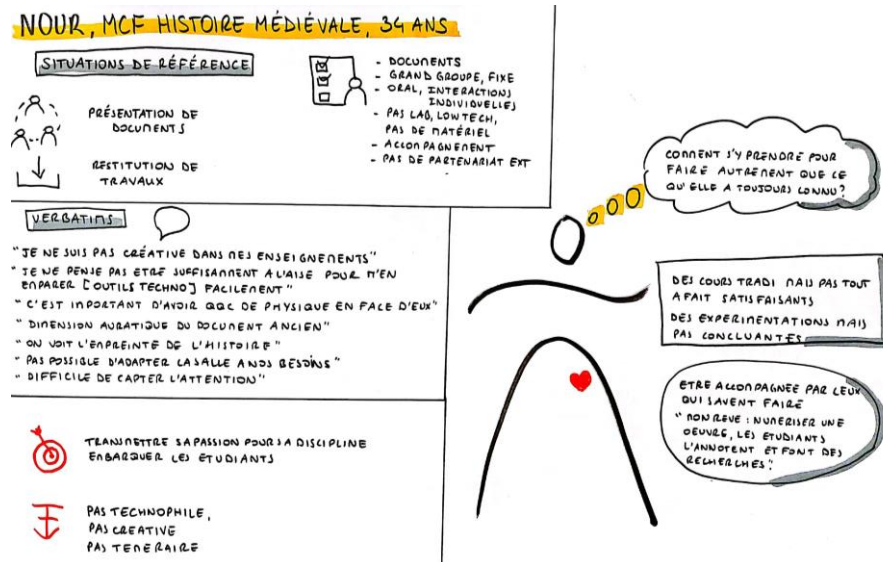 NOUR, MCF HISTOIRE MÉDIÉVALE, 34 ANS
SITUATIONS DE RÉFÉRENCE
PRÉSENTATION DE
DOCUMENTS
RESTITUTION DE
TRAVAUX
- DOCUMENTS
- GRAND GROUPE, FIXE
- ORAL, INTERACTIONS
INDIVIDUELLES
- PAS LAB, LOW TECH,
PAS DE MATÉRIEL
- ACCOMPAGNEMENT
- PAS DE PARTENARIAT EXT
VERBATIMS
"JE NE SUIS PAS CRÉATIVE DANS MES ENSEIGNEMENTS"
"JE NE PENSE PAS ETRE SUFFISAMMENT A L'AISE POUR M'EN
EMPARER [OUTILS TECHNO] FACILEMENT"
"C'EST IMPORTANT D'AVOIR QQC DE PHYSIQUE EN FACE D'EUX"
"DIMENSION AURATIQUE DU DOCUMENT ANCIEN"
"ON VOIT L'EMPREINTE DE L'HISTOIRE"
"PAS POSSIBLE D'ADAPTER LA SALLE A NOS BESOINS"
"DIFFICILE DE CAPTER L'ATTENTION"
TRANSMETTRE SA PASSION POUR SA DISCIPLINE
EMBARQUER LES ETUDIANTS
PAS TECHNOPHILE,
PAS CREATIVE
PAS TEMERAIRE
COMMENT S'Y PRENDRE POUR
FAIRE AUTREMENT QUE CE
QU'ELLE A TOUJOURS CONNU?
DES COURS TRADI MAIS PAS TOUT
A FAIT SATISFAISANTS
DES EXPERIMENTATIONS MAIS
PAS CONCLUANTES
ETRE ACCOMPAGNEE PAR CEUX
QUI SAVENT FAIRE
"MON REVE : NUMERISER UNE
OEUVRE, LES ETUDIANTS
L'ANNOTENT ET FONT DES
RECHERCHES"